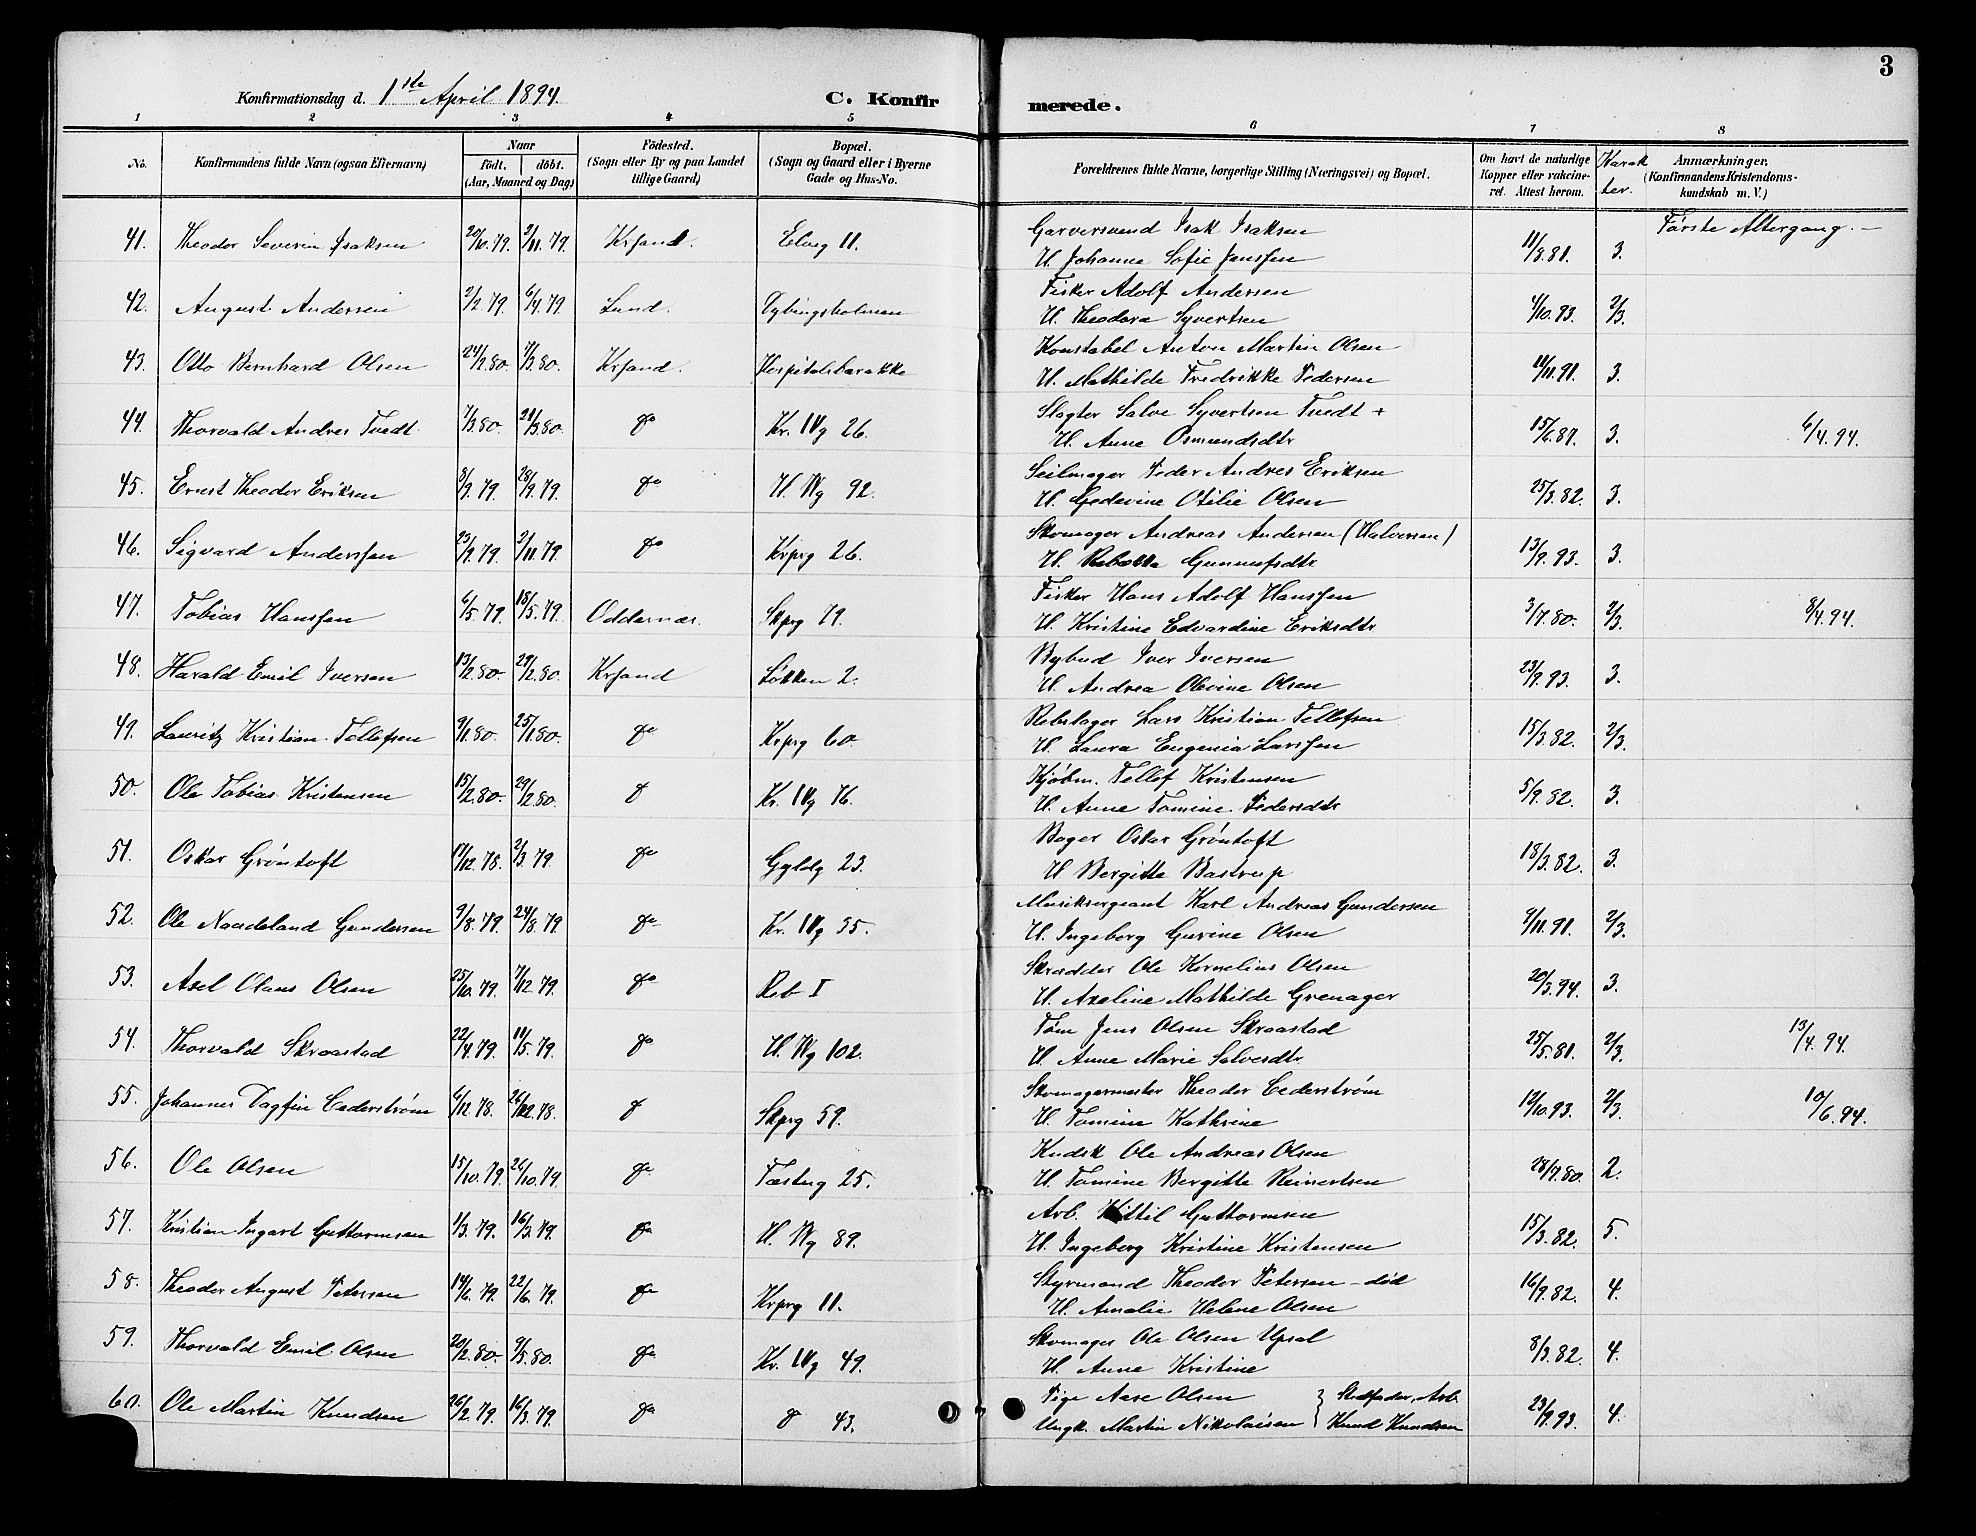 3
Konfirmationsdag d. 1ste April 1894. C. Konfirmerede.
1 2 3 4 5 6 7 8
No. Konfirmandens fulde Navn (ogsaa Efternavn) Naar født. døbt. (Aar, Maaned og Dag) Fødested. (Sogn eller By og paa Landet tillige Gaard.) Bopæl. (Sogn og Gaard eller i Byerne Gade og Hus-No. Forældrenes fulde Navne, borgerlige Stilling (Næringsvei) og Bopæl. Om havt de naturlige Kopper eller vakcineret. Attest herom. Karakter. Anmærkninger. (Konfirmandens Kristendomskundskab m. V.)
Første Altergang.
41. Theodor Severin Isaksen 20/10.79. 2/11.79. Krsand. Elveg 11. Garversvend Isak Isaksen 11/3.81. 3.
H. Johanne Sofie Janssen
42. August Andersen 2/2.79. 6/4.79. Lund. Dybingsholmen Fisker Adolf Andersen 4/10.93. 2/3.
H. Theodora Syvertsen
43. Otto Bernhard Olsen 24/2.80. 7/3.80. Krsand. Hospitalsbarakke Konstabel Anton Martin Olsen 11/11.91. 3.
H. Mathilde Fredrikke Pedersen
44. Thorvald Andres Tvedt 7/3.80. 21/3.80. do Kr. IVg 26. Slagter Salve Syvertsen Tvedt + 15/6.87. 3. 6/4.94.
H. Anne Osmundsdtr
45. Ernst Theodor Eriksen 3/9.79. 28/9.79. do H. IVg 92. Seilmager Peder Andres Eriksen 25/3.82. 3.
H. Gedevine Otilie Olsen
46. Sigvard Anderssen 23/9.79. 2/11.79. do Krprg 26. Skomager Andreas Andersen (Halvorsen) 13/9.93. 3.
H. Rebekka Gunnufsdtr
47. Tobias Hanssen 6/5.79. 18/5.79. Oddernæs. Skprg 79. Fisker Hans Adolf Hanssen 3/7.80. 2/3. 8/4.94.
H. Kristine Edvardine Eriksdtr
48. Harald Emil Iversen 13/2.80. 29/2.80. Krsand Løkken 2. Bybud Iver Iversen 23/9.93. 3.
H. Andrea Olevine Olsen
49. Lauritz Kristian Tellefsen 9/1.80. 25/1.80. do Krprg 60. Rebslager Lars Kristian Tellefsen 15/3.82. 2/3.
H. Laura Eugenia Larssen
50. Ole Tobias Kristensen 15/2.80. 29/2.80. do Kr. IVg 76. Kjøbm. Tellef Kristensen 5/9.82. 3.
H. Anne Tomine Pedersdtr
51. Oskar Grøntoft 17/12.78. 2/3.79. do Gyldg 23. Bager Oskar Grøntoft 18/3.82. 3.
H Bergitte Bastrup
52. Ole Naadeland Gundersen 9/8.79. 24/8.79 do Kr. IVg 55. Musiksergeant Karl Andreas Gundersen 9/11.91. 2/3.
H. Ingeborg Gurine Olsen
53. Axel Olaus Olsen 25/10.79. 7/12.79. do Reb I Skrædder Ole Kornelius Olsen 20/3.94. 3.
H. Axeline Mathilde Grenager
54. Thorvald Skraastad 22/4.79. 11/5.79. do H. IVg 102. Tøm Jens Olsen Skraastad 25/5.81. 2/3. 13/4.94.
H Anne Marie Salvesdtr
55. Johannes Dagfin Cederstrøm 6/12.78. 26/12.78. do Skprg 59. Skomagermester Theodor Cederstrøm 12/10.93. 2/3. 10/6.94.
H. Tomine Kathrine
56. Ole Olsen 15/10.79. 26/10.79. do Fæstng 25. Kudsk Ole Andreas Olsen 28/7.80. 2.
H. Tomine Bergitte Reinertsen
57. Kristian Ingart Guttormsen 1/3.79. 16/3.79. do H. IVg 89. Arb. Kittil Guttormsen 15/3.82. 5.
H. Ingeborg Kristine Kristensen
58. Theodor August Petersen 14/6.79. 22/6.79. do Krprg 11. Styrmand Theodor Petersen – død 16/9.82. 4.
H. Amalie Helene Olsen
59. Thorvald Emil Olsen 20/2.80. 9/5.80. do Kr. IVg 49. Skomager Ole Olsen Upsal 8/3.82. 4.
H. Anne Kristine
60. Ole Martin Knudsen 26/2.79. 16/3.79. do do 43. Pige Aase Olsen } Stedfader, Arb. 23/9.93. 4.
Ungk. Martin Nikolaisen } Knud Knudsen